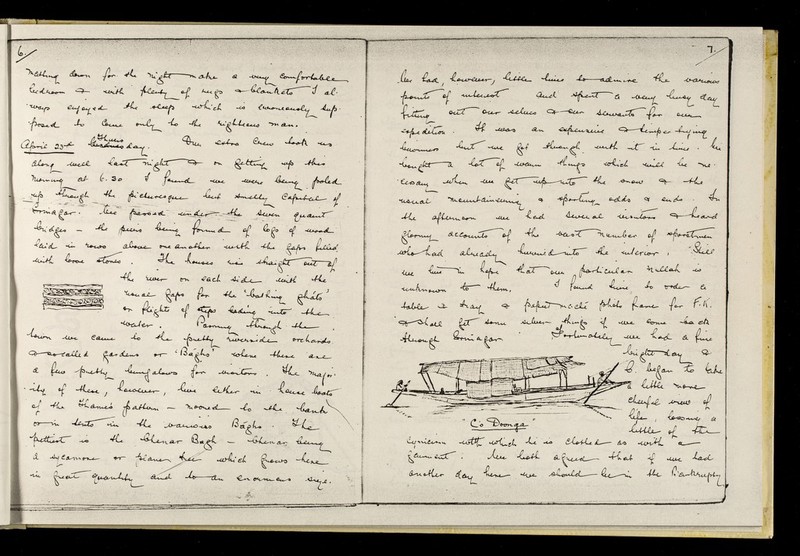 6.
nothing down for the night make a very comfortable
bedroom & with plenty of rugs & blankets I al-
-ways enjoyed the sleep which is erroneously sup-
-posed to come only to the righteous man.
April 23rd Thursday. Our extra crew took us
along well last night & on getting up this
morning at 6.30 I found we were being poled
up through the picturesque but smelly Capital of
Srinagar. We passed under the seven quaint
bridges – the piers being formed of logs of wood
laid in rows above one another with the gaps filled
with loose stones. The houses rise straight out of
the river on each side with the
usual gaps for the 'bathing ghâts'
or flights of steps leading into the
water. Passing through the
town we came to the pretty riverside orchards
& so-called gardens or 'Baghs' where there are
a few pretty bungalows for visitors. The major-
-ity of these, however, live either in house boats
of the Thames pattern – moored to the bank
or in tents in the various Baghs. The
prettiest is the Chenar Bagh – chenar being
a sycamore or plane tree which grows here
in great quantity and to an enormous size.
7.
We had, however, little time to admire the various
points of interest and spent a very busy day
fitting out our selves & our servants for our
expedition. It was an expensive & temper trying
business but we got through with it in time. We
bought a lot of warm things which will be ne-
cessary when we get up into the snow & the
usual mountaineering & sporting odds & ends. In
the afternoon we had several visitors & heard
gloomy accounts of the vast number of sportsmen
who had already hurried into the interior. Still
we live in hope that our particular nullah is
unknown to them. I found time to order a
table & tray & papier maché photo frame for F.K.
& shall get some silver things if we come back
through Srinagar. Fortunately we had a fine
bright day &
C. began to take
a little more
cheerful view of
life, losing a
little of the
C's Doonga
cynicism with which he is clothed as with a
garment. We both agreed that if we had
another day here we should be in the Bankruptcy